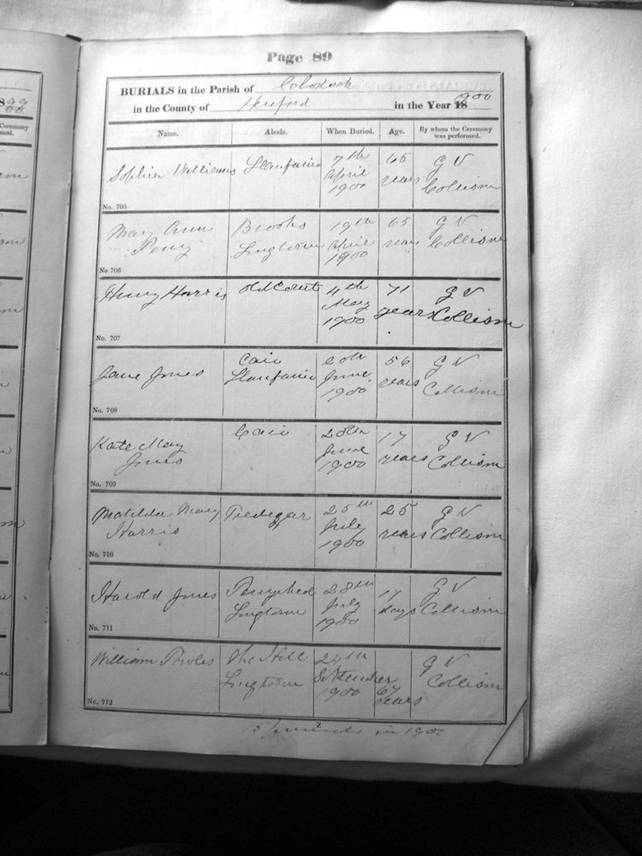 Page 89
BURIALS in the Parish of Clodock
in the County of Hereford in the Year 1900
Name. Abode. When Buried. Age. By whom the Ceremony was performed.
Sophia Williams Llanfairin 7th April 1900 65 years G V Collison
No. 705
Mary Ann Brooks Longtown 19th April 1900 65 years G V Collison
No 706
Henry Harris Old Court 4th May 1900 71 years G V Collison
No. 707
Jane Jones Cair 1900 56 years G V Collison
No. 708
Kate May Jones Cair 28th June 1900 17 years G V Collison
No. 709
Matilda Mary Harris Tredegar 25th July 1900 25 years G V Collison
No. 710
Harold Jones Longtown 28th July 1900 17 days G V Collison
No. 711
William Powles The Hill Longtown September 1900 67 years G V Collison
No. 712
in 1900